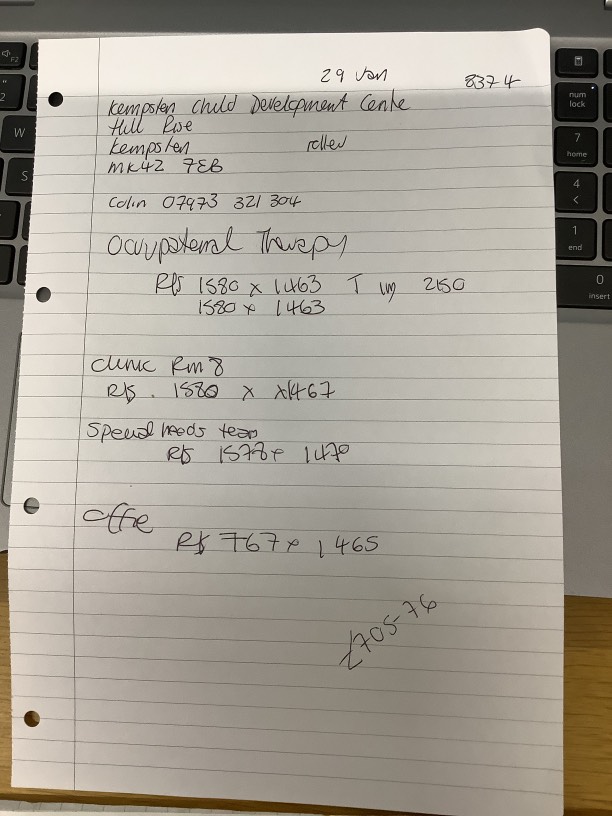 29 Jan 8374
Kempston Child Development Centre
Hill Rise
Kempston roller
MK42 7EB
Colin 07973 321 304
Occupational Therapy
R/S 1580 x 1463 T 2150
1580 x 1463
Clinic Rm 8
R/S . 1580 x x1467
Special needs team
R/S 1578 x 1470
Office
R/S 767 x 1465
£705-76